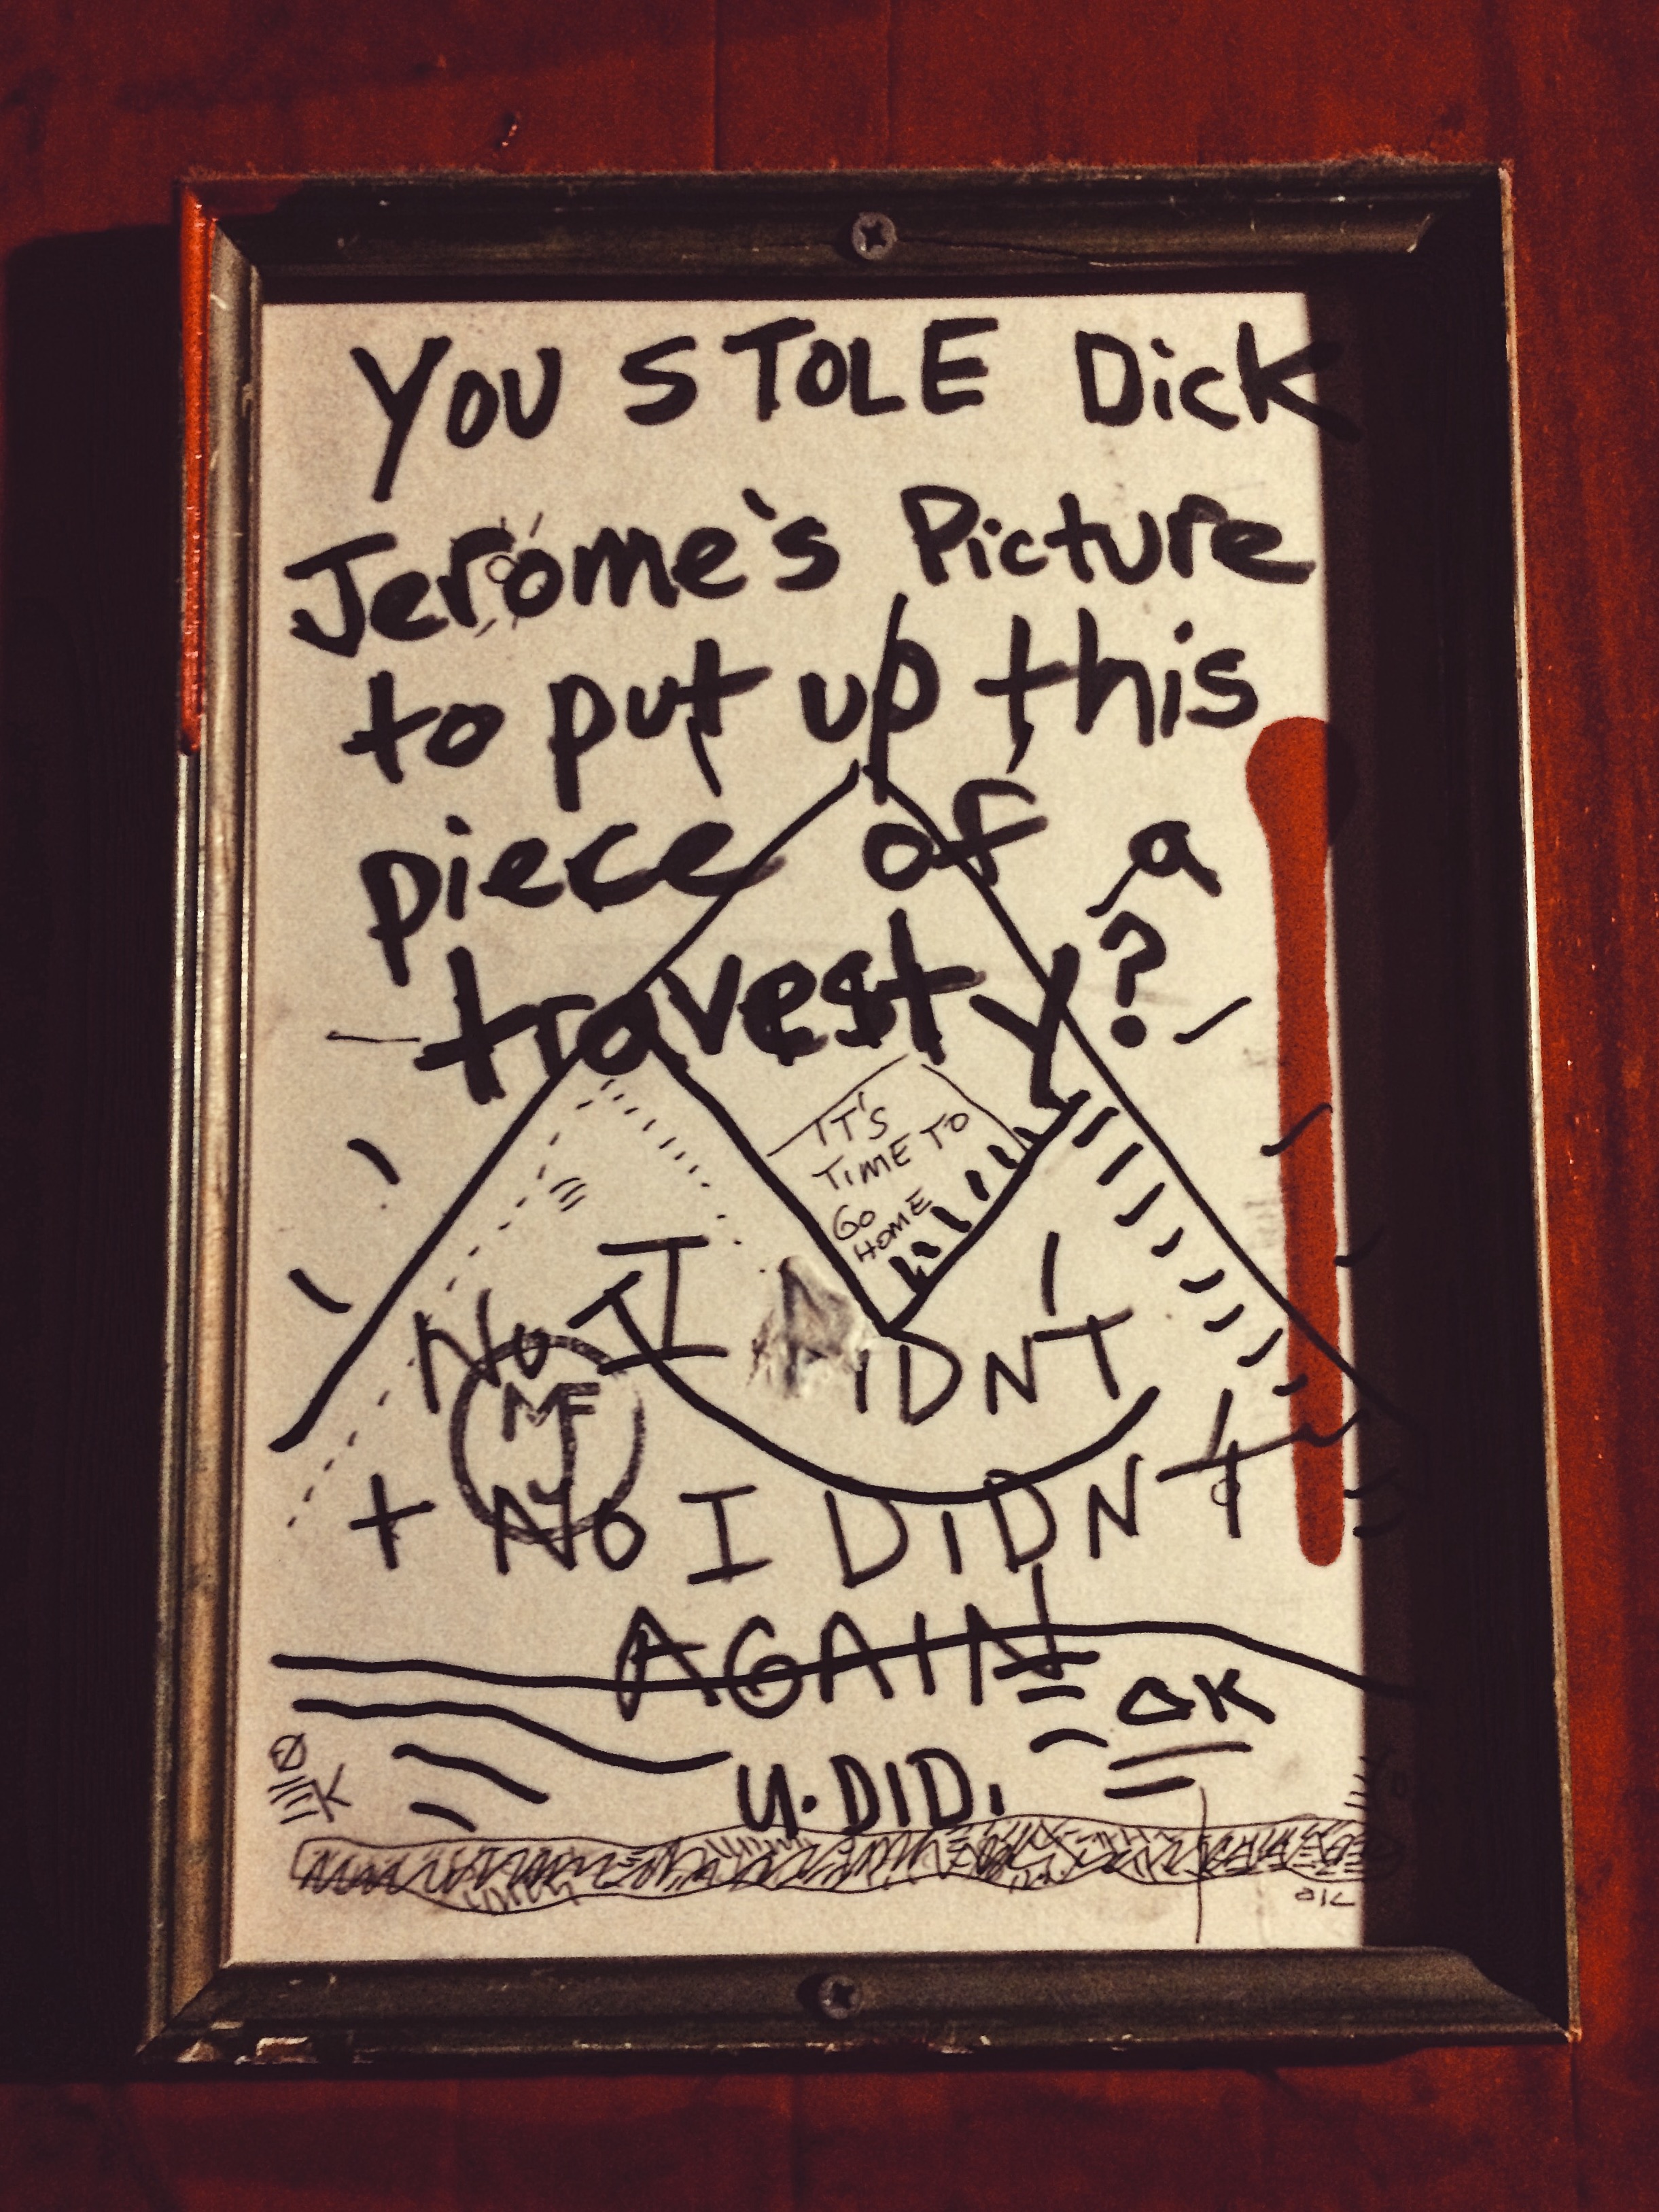 YOU STOLE Dick
Jerome's Picture
to put up this
piece of a
travesty?
IT'S
TIME TO
GO
HOME
No I DIDN'T
MF
J
+ No I DIDN'T
AGAIN!
OK
U. DID.